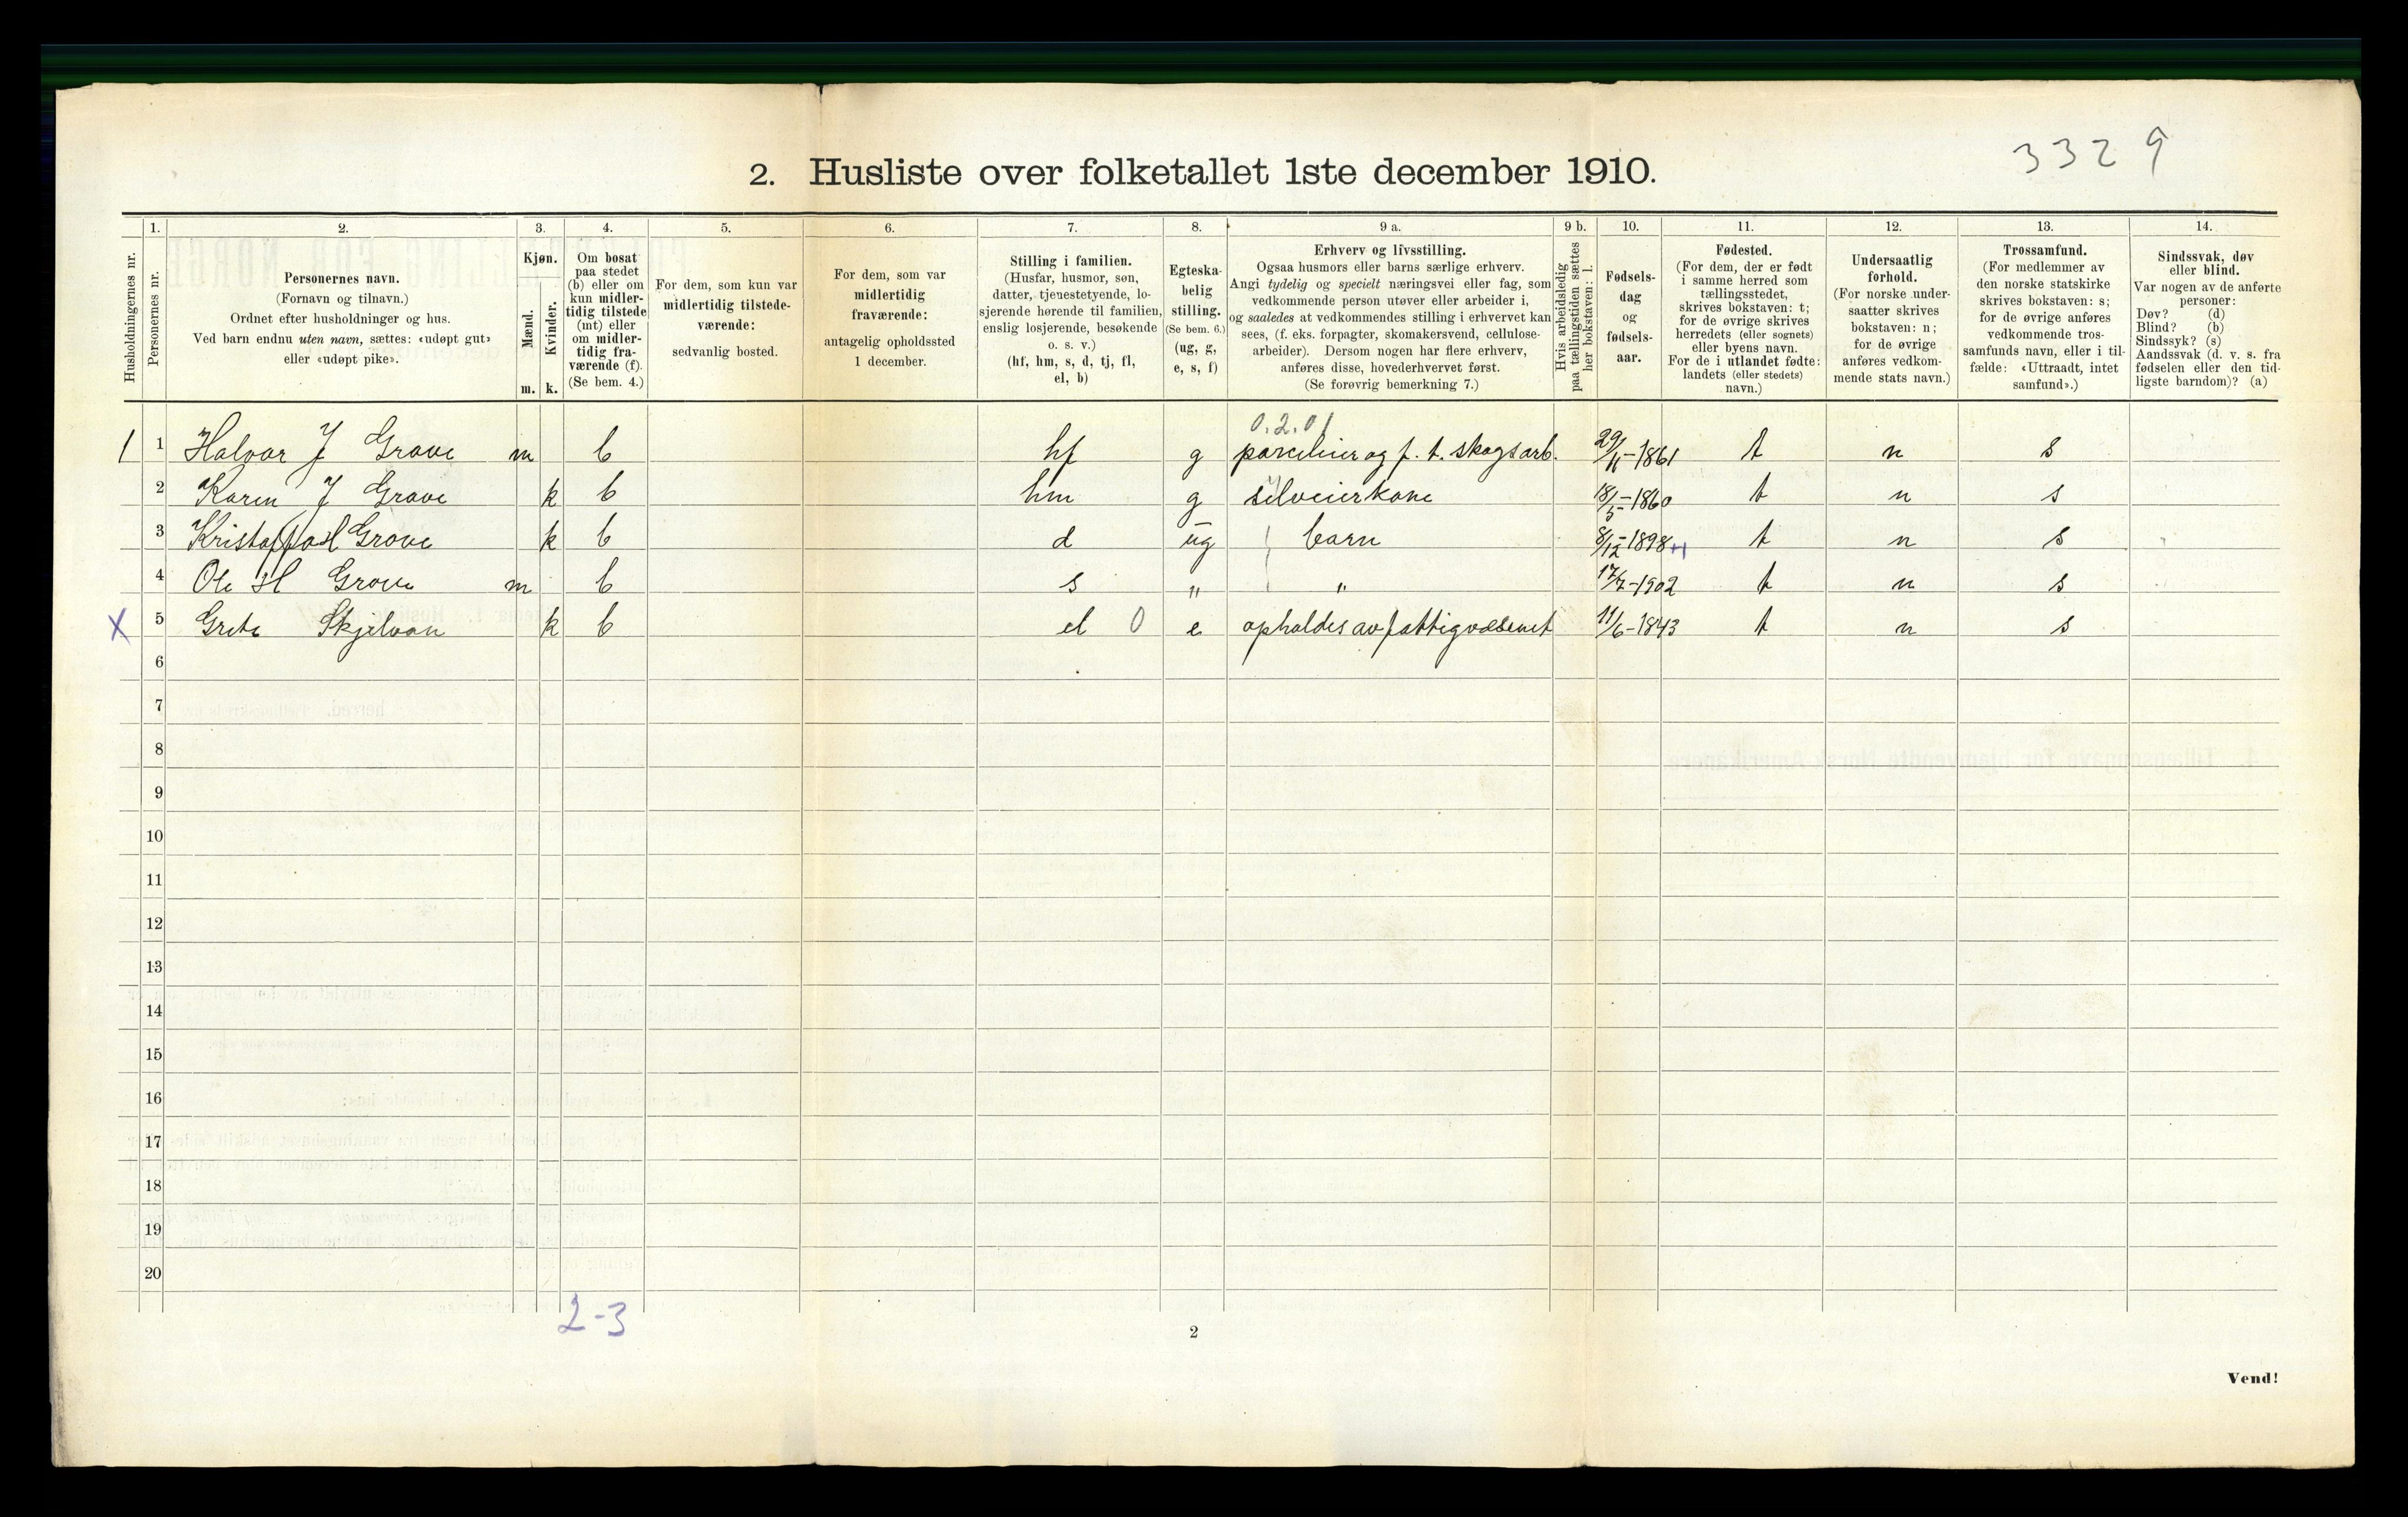 3329
2. Husliste over folketallet 1ste december 1910.
1. 2. 3. 4. 5. 6. 7. 8. 9 a. 9 b. 10. 11. 12. 13. 14.
Husholdningernes nr.
Personernes nr.
Personernes navn.
(Fornavn og tilnavn.)
Ordnet efter husholdninger og hus.
Ved barn endnu uten navn, sættes: «udøpt gut»
eller «udøpt pike».
Kjøn.
Mænd.
Kvinder.
m. k.
Om bosat
paa stedet
(b) eller om
kun midler-
tidig tilstede
(mt) eller
om midler-
tidig fra-
værende (f).
(Se bem. 4.)
For dem, som kun var
midlertidig tilstede-
værende:
sedvanlig bosted.
For dem, som var
midlertidig
fraværende:
antagelig opholdssted
1 december.
Stilling i familien.
(Husfar, husmor, søn,
datter, tjenestetyende, lo-
sjerende hørende til familien,
enslig losjerende, besøkende
o. s. v.)
(hf, hm, s, d, tj, fl,
el, b)
Egteska-
belig
stilling.
(Se bem. 6.)
(ug, g,
e, s, f)
Erhverv og livsstilling.
Ogsaa husmors eller barns særlige erhverv.
Angi tydelig og specielt næringsvei eller fag, som
vedkommende person utøver eller arbeider i,
og saaledes at vedkommendes stilling i erhvervet kan
sees, (f. eks. forpagter, skomakersvend, cellulose-
arbeider). Dersom nogen har flere erhverv,
anføres disse, hovederhvervet først.
(Se forøvrig bemerkning 7.)
Hvis arbeidsledig
paa tællingstiden sættes
her bokstaven: l.
Fødsels-
dag
og
fødsels-
aar.
Fødested.
(For dem, der er født
i samme herred som
tællingsstedet,
skrives bokstaven: t;
for de øvrige skrives
herredets (eller sognets)
eller byens navn.
For de i utlandet fødte:
landets (eller stedets)
navn.)
Undersaatlig
forhold.
(For norske under-
saatter skrives
bokstaven: n;
for de øvrige
anføres vedkom-
mende stats navn.)
Trossamfund.
(For medlemmer av
den norske statskirke
skrives bokstaven: s;
for de øvrige anføres
vedkommende tros-
samfunds navn, eller i til-
fælde: «Uttraadt, intet
samfund».)
Sindssvak, døv
eller blind.
Var nogen av de anførte
personer:
Døv? (d)
Blind? (b)
Sindssyk? (s)
Aandssvak (d. v. s. fra
fødselen eller den tid-
ligste barndom)? (a)
0.2.01
1 1 Halvor J Grave m b hf g parcelier og f. t. skogsarb. 29/11-1861 t n s
2 Karen J Grave k b hm g selveierkone 18/5-1860 t n s
3 H Grave k b d ug barn 8/12-1898 +1 t n s
4 Ole H Grave m b s „ „ 17/7-1902 t n s
X 5 Grete Skjelvan k b el 0 e opholdes av fattigvæsenet 11/6-1843 t n s
6
7
8
9
10
11
12
13
14
15
16
17
18
19
20
2-3
2
Vend!